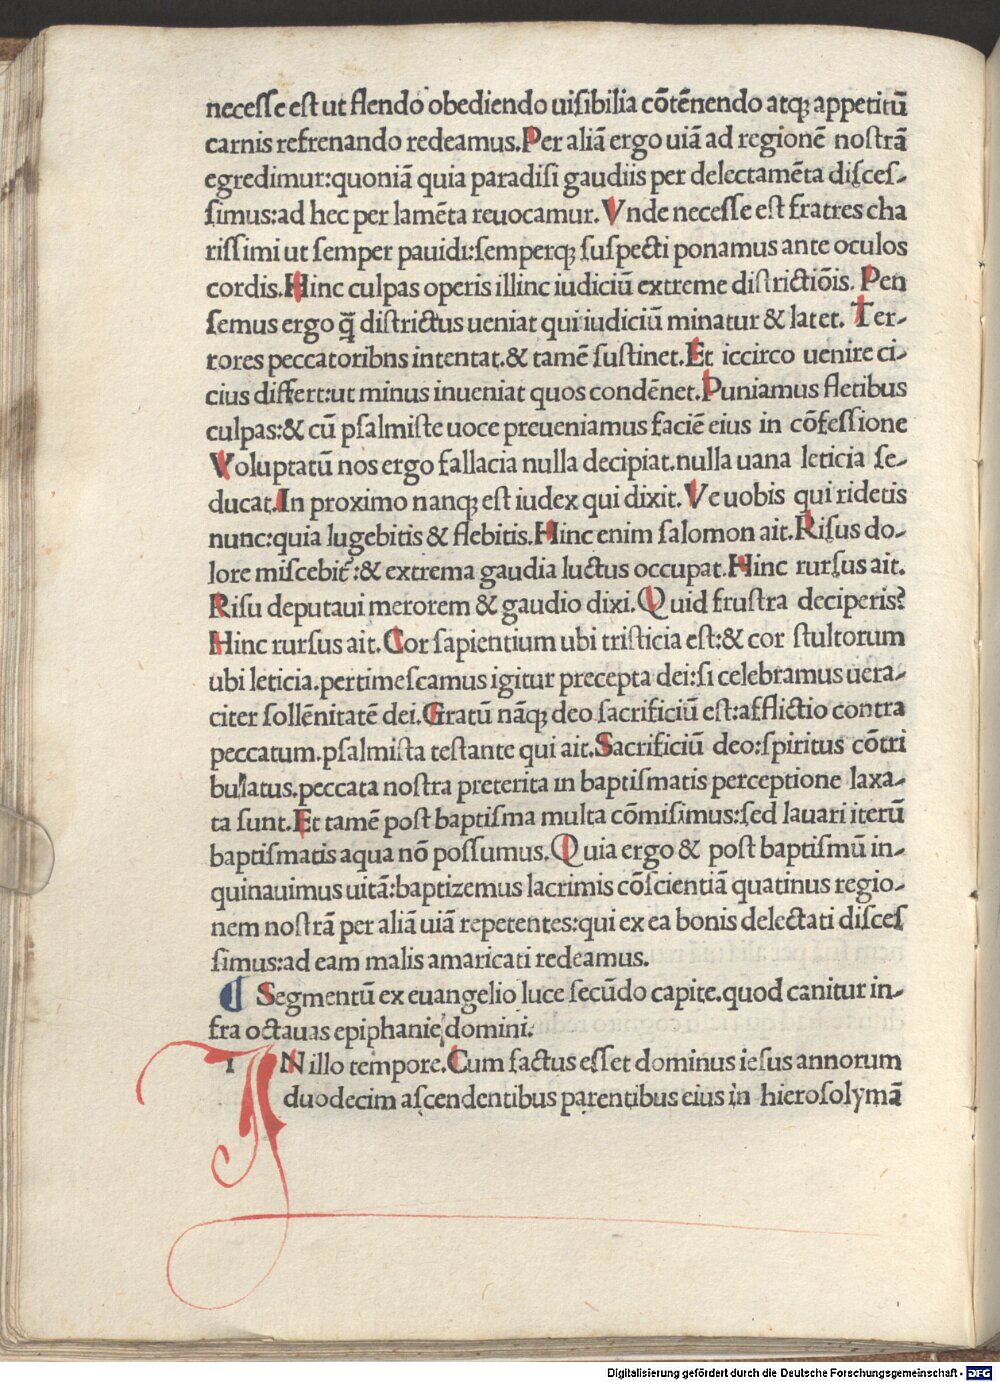 neceſſe eſt ut flendo obediendo uiſibilia cōtēnendo atqꝫ appetitū
carnis refrenando redeamus.Per aliā ergo uiā ad regionē noſtrā
egredimur:quoniā quia paradiſi gaudiis per delectamēta diſceſ-
ſimus:ad hec per lamēta reuocamur.Vnde neceſſe eſt fratres cha
riſſimi ut ſemper pauidi:ſemperqꝫ ſuſpecti ponamus ante oculos
cordis.Hinc culpas operis illinc iudiciū extreme diſtrictiōis. Pen
ſemus ergo q̄ diſtrictus ueniat qui iudiciū minatur & latet. Ter-
rores peccatoribns intentat.& tamē ſuſtinet.Et iccirco uenire ci-
cius differt:ut minus inueniat quos condēnet.Puniamus fletibus
culpas:& cū pſalmiſte uoce preueniamus faciē eius in cōfeſſione
Voluptatū nos ergo fallacia nulla decipiat.nulla uana leticia ſe-
ducat.In proximo nanqꝫ eſt iudex qui dixit.Ve uobis qui ridetis
nunc:quia lugebitis & flebitis.Hinc enim ſalomon ait.Riſus do-
lore miſcebit̉:& extrema gaudia luctus occupat.Hinc rurſus ait.
Riſu deputaui merorem & gaudio dixi.Quid fruſtra deciperis?
Hinc rurſus ait.Cor ſapientium ubi triſticia eſt:& cor ſtultorum
ubi leticia.pertimeſcamus igitur precepta dei:ſi celebramus uera-
citer ſollēnitatē dei.Gratū nāqꝫ deo ſacrificiū eſt:afflictio contra
peccatum.pſalmiſta teſtante qui ait.Sacrificiū deo:ſpiritus cōtri
bulatus.peccata noſtra preterita in baptiſmatis perceptione laxa-
ta ſunt.Et tamē poſt baptiſma multa cōmiſimus:ſed lauari iterū
baptiſmatis aqua nō poſſumus.Quia ergo & poſt baptiſmū in-
quinauimus uitā:baptizemus lacrimis cōſcientiā quatinus regio-
nem noſtrā per aliā uiā repetentes:qui ex ea bonis delectati diſceſ
ſimus:ad eam malis amaricati redeamus.
¶ Segmentū ex euangelio luce ſecūdo capite.quod canitur in-
fra octauas epiphanie domini.
IN illo tempore.Cum factus eſſet dominus ieſus annorum
duodecim aſcendentibus parentibus eius in hieroſolymā
Digitalisierung gefördert durch die Deutsche Forschungsgemeinschaft - DFG